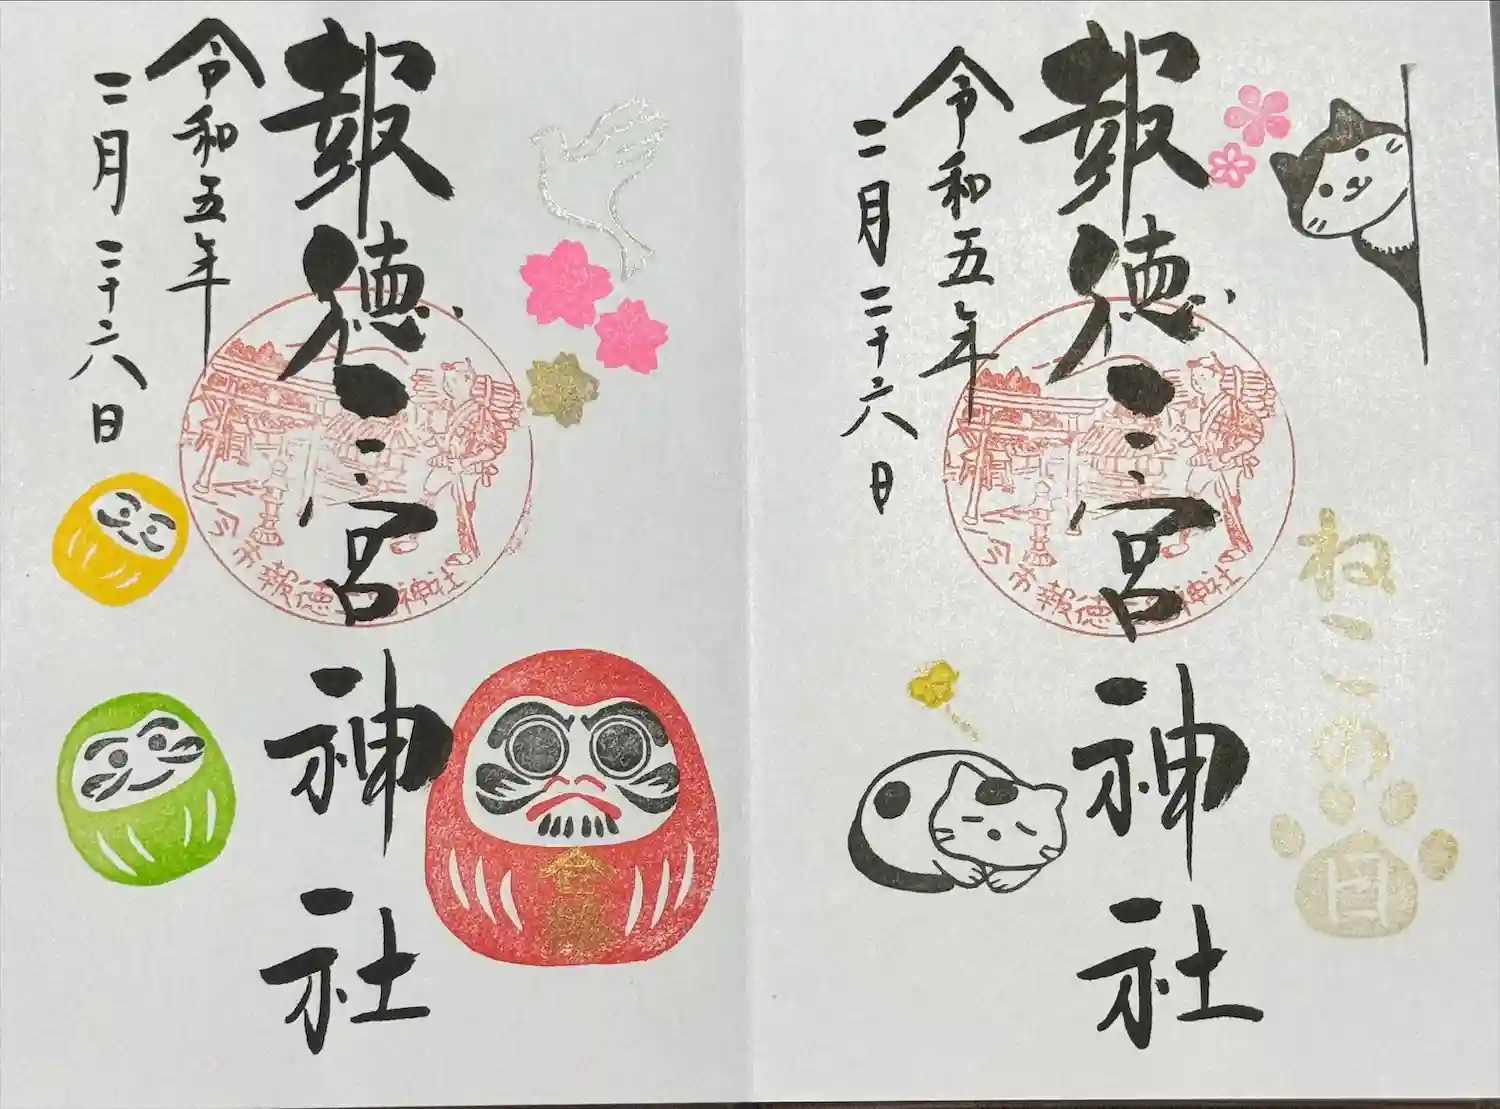 報徳二宮神社
令和五年
二月二十六日
今市報徳二宮神社
ねこの日
報徳二宮神社
令和五年
二月二十六日
今市報徳二宮神社
合格